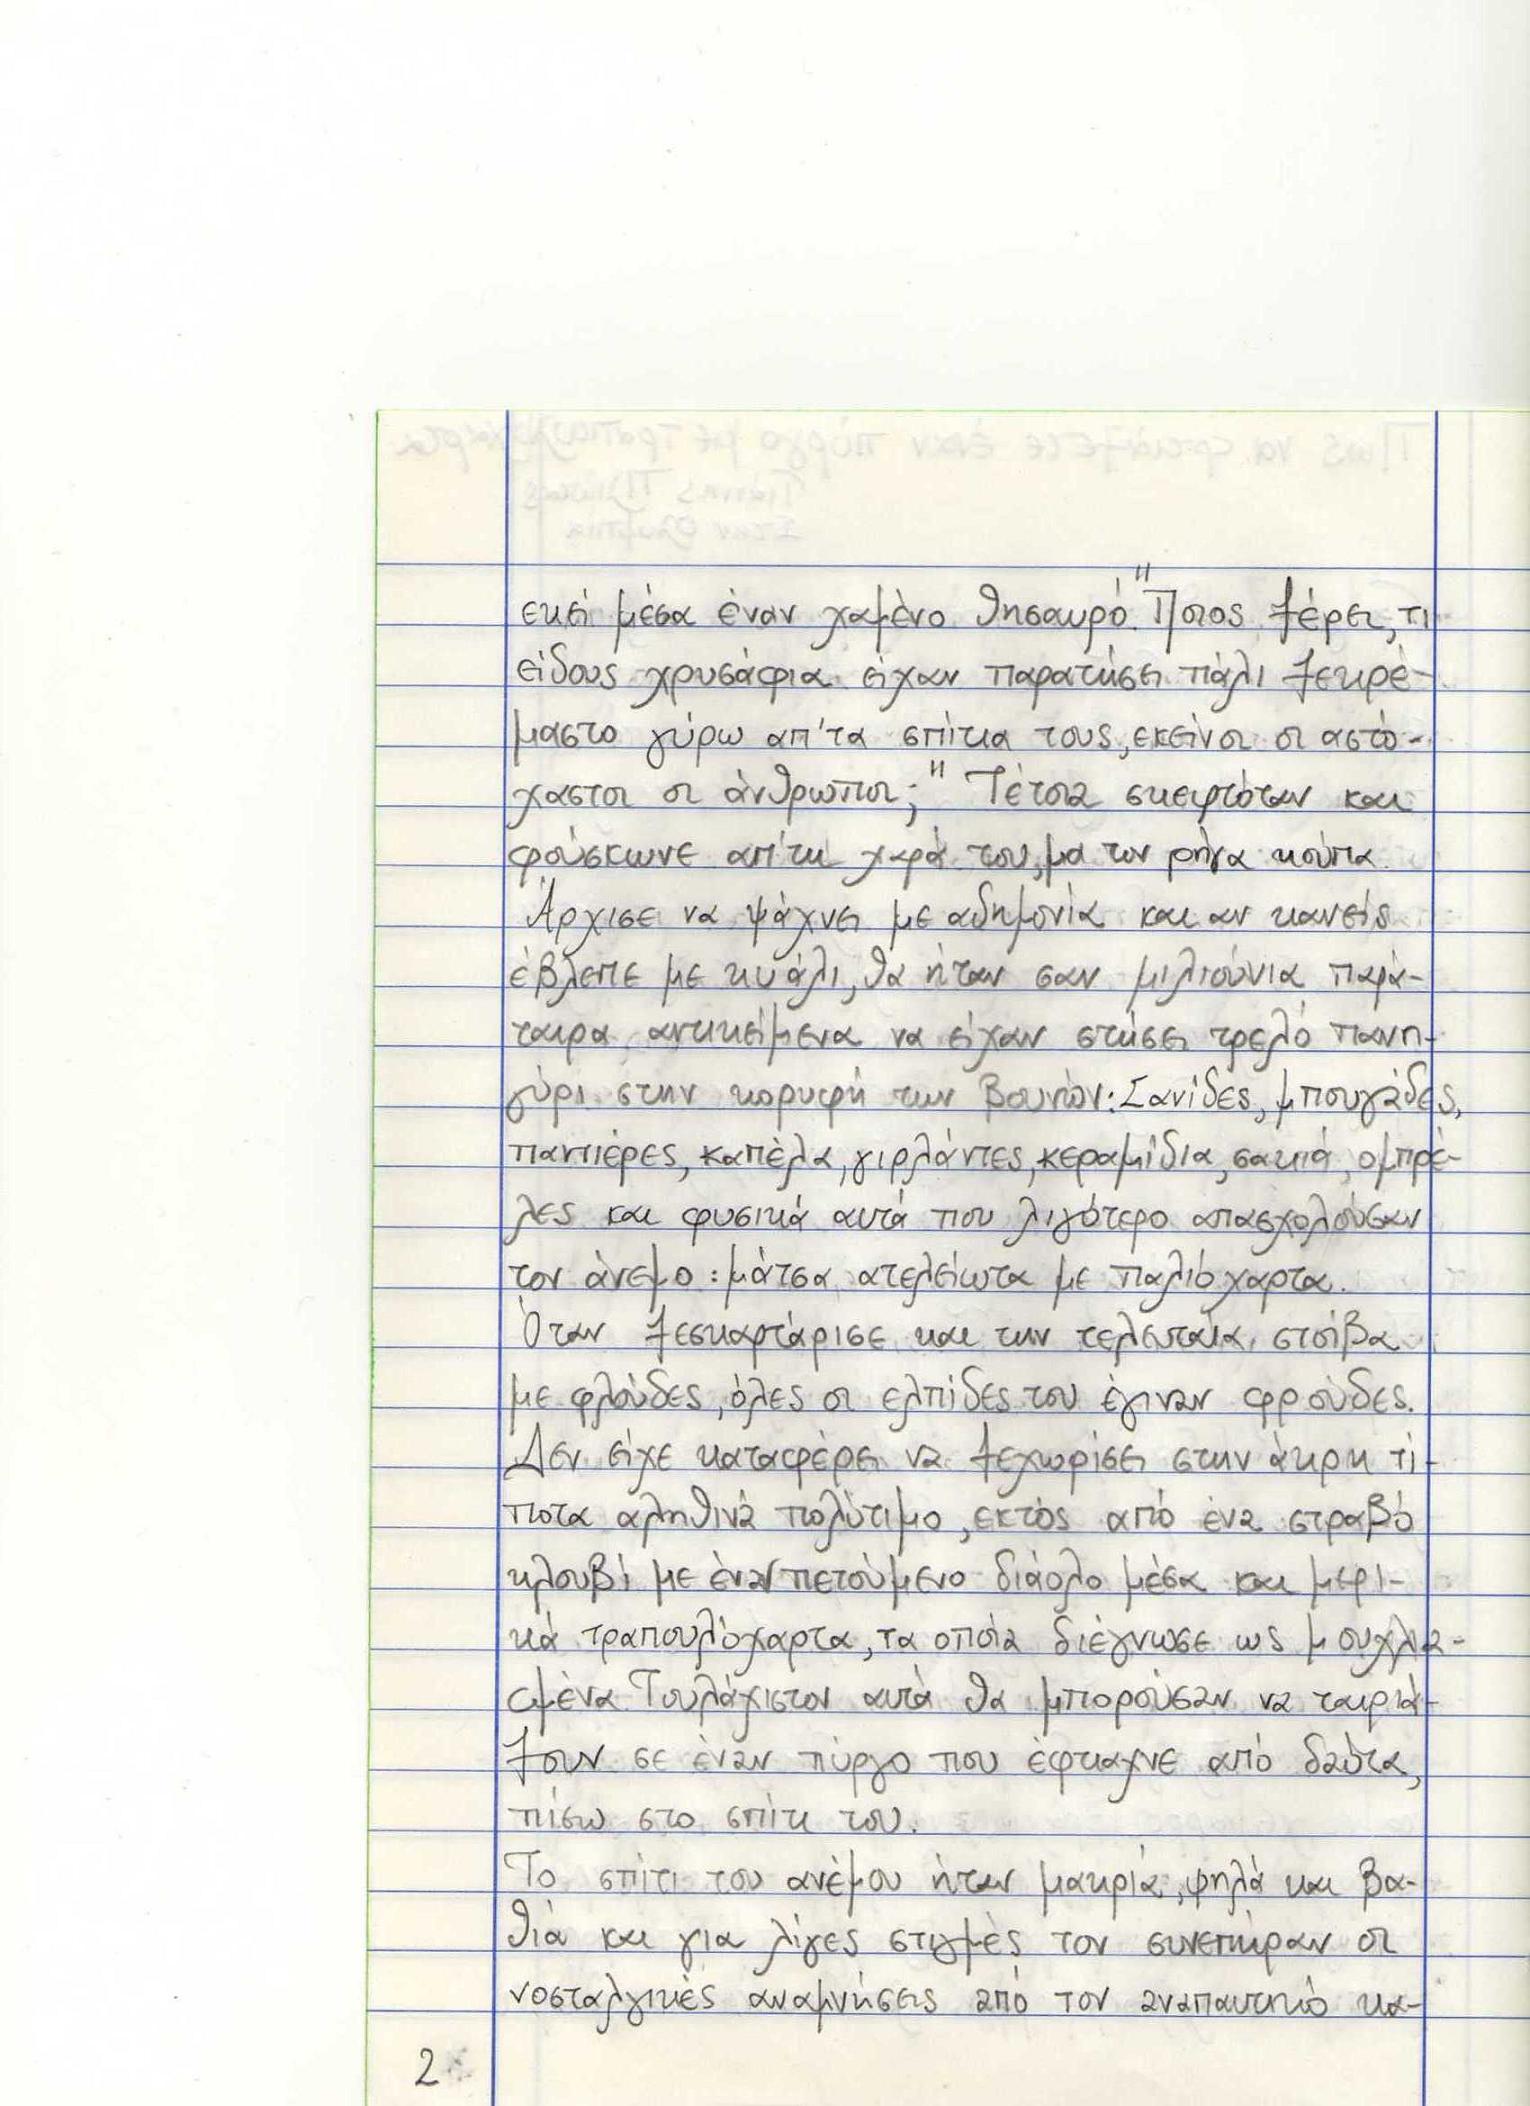 εκεί μέσα έναν χαμένο θησαυρό. "Ποιος ξέρει, τι
είδους χρυσάφια είχαν παρατήσει πάλι ξεκρέ-
μαστο γύρω απ'τα σπίτια τους, εκείνοι οι αστό-
χαστοι οι άνθρωποι;" Τέτοια σκεφτόταν και
φούσκωνε απ'τη χαρά του, μα τον ρήγα κούπα.
Άρχισε να ψάχνει με αδημονία και αν κανείς
έβλεπε με κυάλι, θα ήταν σαν μιλιούνια παρά-
ταιρα αντικείμενα να είχαν στήσει τρελό πανη-
γύρι στην κορυφή των βουνών: Σανίδες, μπουγάδες,
παντιέρες, καπέλα, γιρλάντες, κεραμίδια, σακιά, ομπρέ-
λες και φυσικά αυτά που λιγότερο απασχολούσαν
τον άνεμο: μάτσα ατελείωτα με παλιόχαρτα.
Όταν ξεσκαρτάρισε και την τελευταία στοίβα
με φλούδες, όλες οι ελπίδες του έγιναν φρούδες.
Δεν είχε καταφέρει να ξεχωρίσει στην άκρη τί-
ποτα αληθινά πολύτιμο, εκτός από ένα στραβό
κλουβί με έναν πετούμενο διάολο μέσα και μερι-
κά τραπουλόχαρτα, τα οποία διέγνωσε ως μουχλια-
σμένα. Τουλάχιστον αυτά θα μπορούσαν να ταιριά-
ξουν σε έναν πύργο που έφτιαχνε από δαύτα,
πίσω στο σπίτι του.
Το σπίτι του ανέμου ήταν μακριά, ψηλά και βα-
θιά και για λίγες στιγμές τον συνεπήραν οι
νοσταλγικές αναμνήσεις από τον αναπαυτικό κα-
2